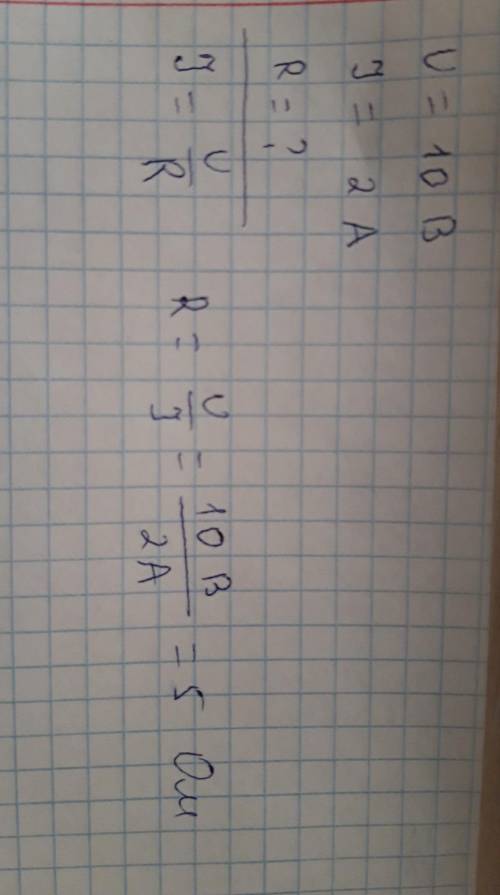 U = 10 В
J = 2 А
R = ?
J = U/R R = U/J = 10 В/2 А = 5 Ом